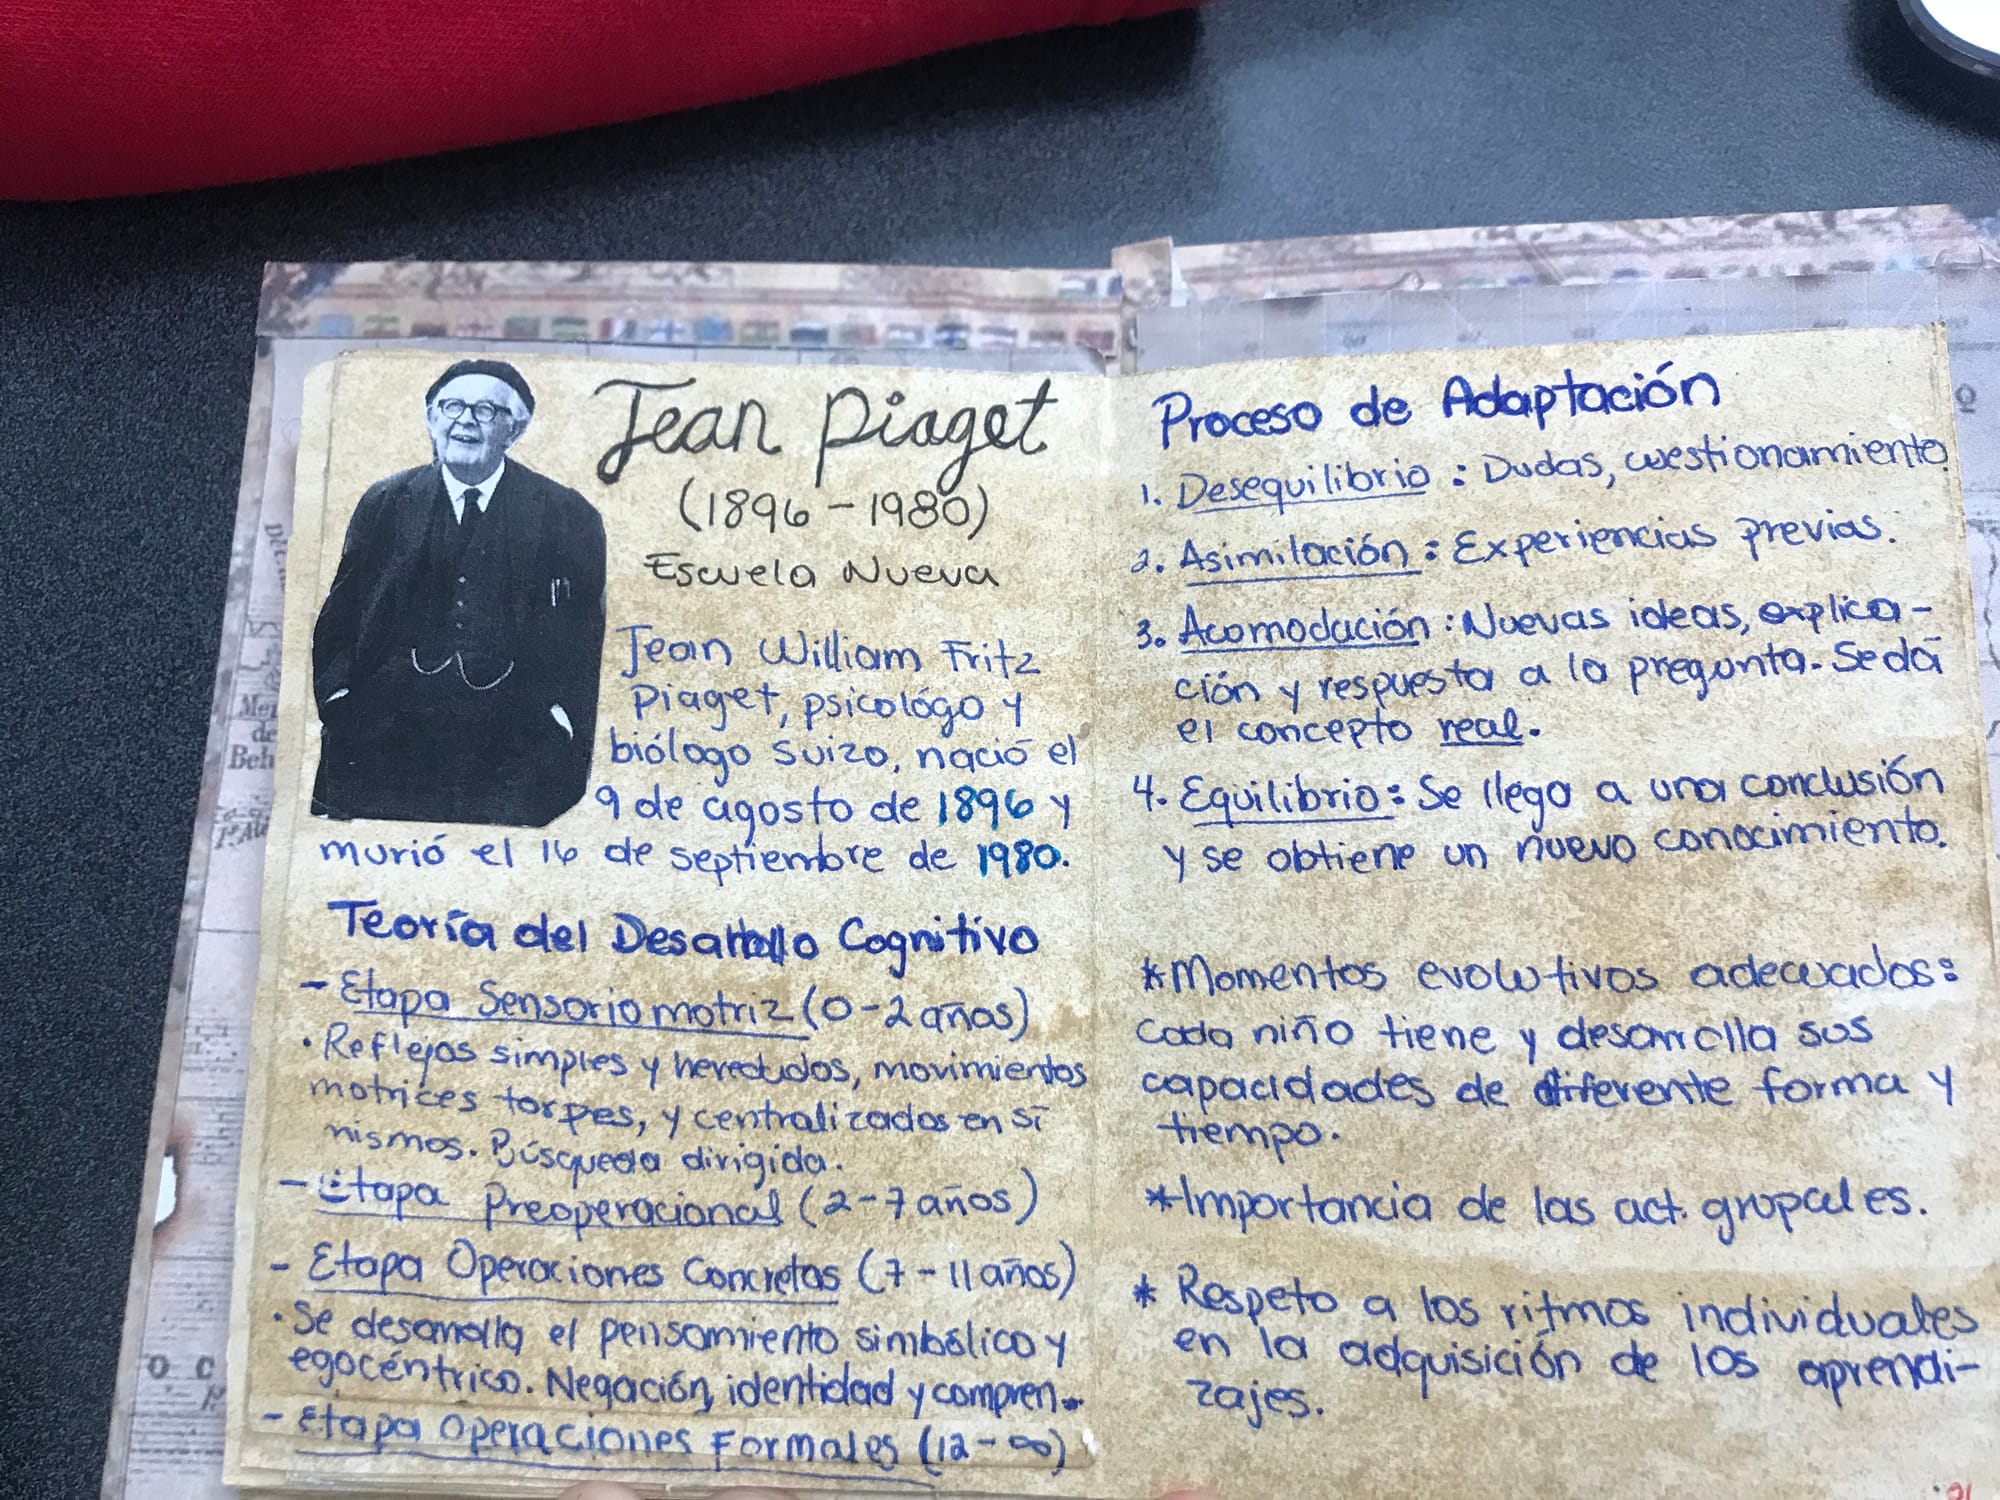 Jean Piaget
(1896-1980)
Escuela Nueva
Jean William Fritz
Piaget, psicológo y
biólogo suizo, nació el
9 de agosto de 1896 y
murió el 16 de septiembre de 1980.
Teoría del Desarrollo Cognitivo
- Etapa Sensoriomotriz (0-2 años)
· Reflejos simples y heredados, movimientos
motrices torpes, y centralizados en sí
mismos. Búsqueda dirigida.
- Etapa Preoperacional (2-7 años)
- Etapa Operaciones Concretas (7-11 años)
· Se desarrolla el pensamiento simbólico y
egocéntrico. Negación, identidad y compren.
- Etapa Operaciones Formales (12-∞)
Proceso de Adaptación
1. Desequilibrio: Dudas, cuestionamiento
2. Asimilación: Experiencias previas.
3. Acomodación: Nuevas ideas, explica-
ción y respuesta a la pregunta. Se dá
el concepto real.
4. Equilibrio: Se llega a una conclusión
y se obtiene un nuevo conocimiento.
*Momentos evolutivos adecuados:
cada niño tiene y desarrolla sus
capacidades de diferente forma y
tiempo.
*Importancia de las act. grupales.
* Respeto a los ritmos individuales
en la adquisición de los aprendi-
zajes.